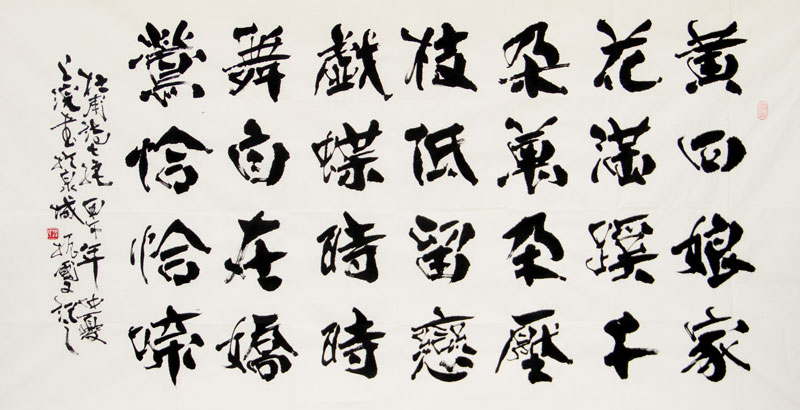 黄四娘家
花滿蹊千
朵萬朵壓
枝低留戀
戲蝶時時
舞自在嬌
鶯恰恰啼
杜甫詩七絕甲申年仲夏
書於泉城振國